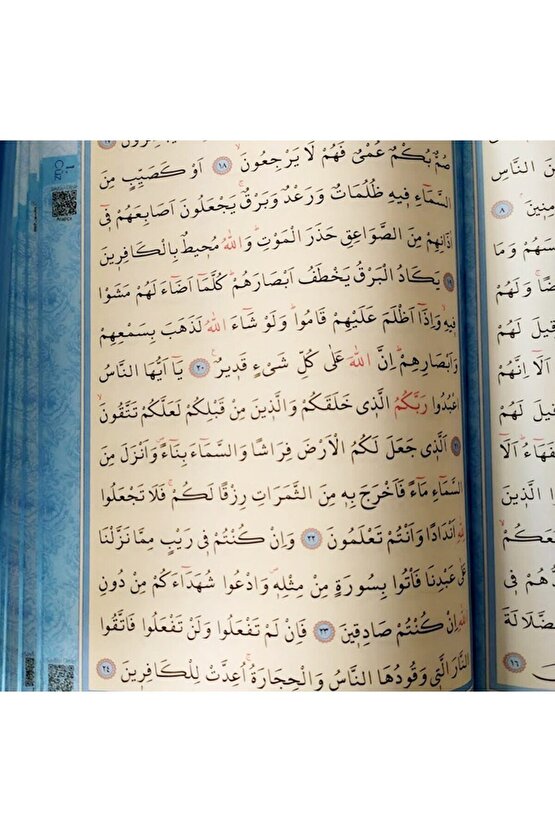 صُمٌّ بُكْمٌ عُمْىٌ فَهُمْ لَا يَرْجِعُونَۙ ١٨ اَوْ كَصَيِّبٍ مِنَ
السَّمَٓاءِ ف۪يهِ ظُلُمَاتٌ وَرَعْدٌ وَبَرْقٌۚ يَجْعَلُونَ اَصَابِعَهُمْ ف۪ٓى
اٰذَانِهِمْ مِنَ الصَّوَاعِقِ حَذَرَ الْمَوْتِۜ وَاللّٰهُ مُح۪يطٌ بِالْكَافِر۪ينَ
١٩ يَكَادُ الْبَرْقُ يَخْطَفُ اَبْصَارَهُمْۜ كُلَّمَٓا اَضَٓاءَ لَهُمْ مَشَوْا
ف۪يهِۙ وَاِذَٓا اَظْلَمَ عَلَيْهِمْ قَامُواۜ وَلَوْ شَٓاءَ اللّٰهُ لَذَهَبَ بِسَمْعِهِمْ
وَاَبْصَارِهِمْۜ اِنَّ اللّٰهَ عَلٰى كُلِّ شَىْءٍ قَد۪يرٌ۟ ٢٠ يَٓا اَيُّهَا النَّاسُ
اعْبُدُوا رَبَّكُمُ الَّذ۪ى خَلَقَكُمْ وَالَّذ۪ينَ مِنْ قَبْلِكُمْ لَعَلَّكُمْ تَتَّقُونَۙ
اَلَّذ۪ى جَعَلَ لَكُمُ الْاَرْضَ فِرَاشًا وَالسَّمَٓاءَ بِنَٓاءًۖ وَاَنْزَلَ مِنَ
السَّمَٓاءِ مَٓاءً فَاَخْرَجَ بِه۪ مِنَ الثَّمَرَاتِ رِزْقًا لَكُمْۚ فَلَا تَجْعَلُوا
لِلّٰهِ اَنْدَادًا وَاَنْتُمْ تَعْلَمُونَ ٢٢ وَاِنْ كُنْتُمْ ف۪ى رَيْبٍ مِمَّا نَزَّلْنَا
عَلٰى عَبْدِنَا فَأْتُوا بِسُورَةٍ مِنْ مِثْلِه۪ۖ وَادْعُوا شُهَدَٓاءَكُمْ مِنْ دُونِ
اللّٰهِ اِنْ كُنْتُمْ صَادِق۪ينَ ٢٣ فَاِنْ لَمْ تَفْعَلُوا وَلَنْ تَفْعَلُوا فَاتَّقُوا
النَّارَ الَّت۪ى وَقُودُهَا النَّاسُ وَالْحِجَارَةُۚ اُعِدَّتْ لِلْكَافِر۪ينَ ٢٤
1. Cüz
النَّاسِ
٨
وَمَا
وَلَهُمْ
ق۪يلَ لَهُمْ
اَلَٓا اِنَّهُمْ
ق۪يلَ لَهُمْ
اَلَٓا
الَّذ۪ينَ
ف۪ى
١٦